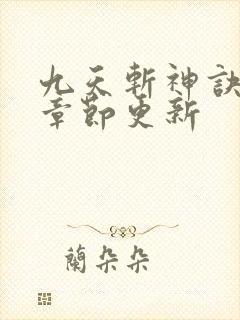 九天斬神訣
章節更新
蘭朵朵